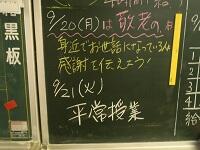 9/20(月)は敬老の日
身近でお世話になっている人
感謝を伝えよう!
9/21(火)
平常授業
黒板